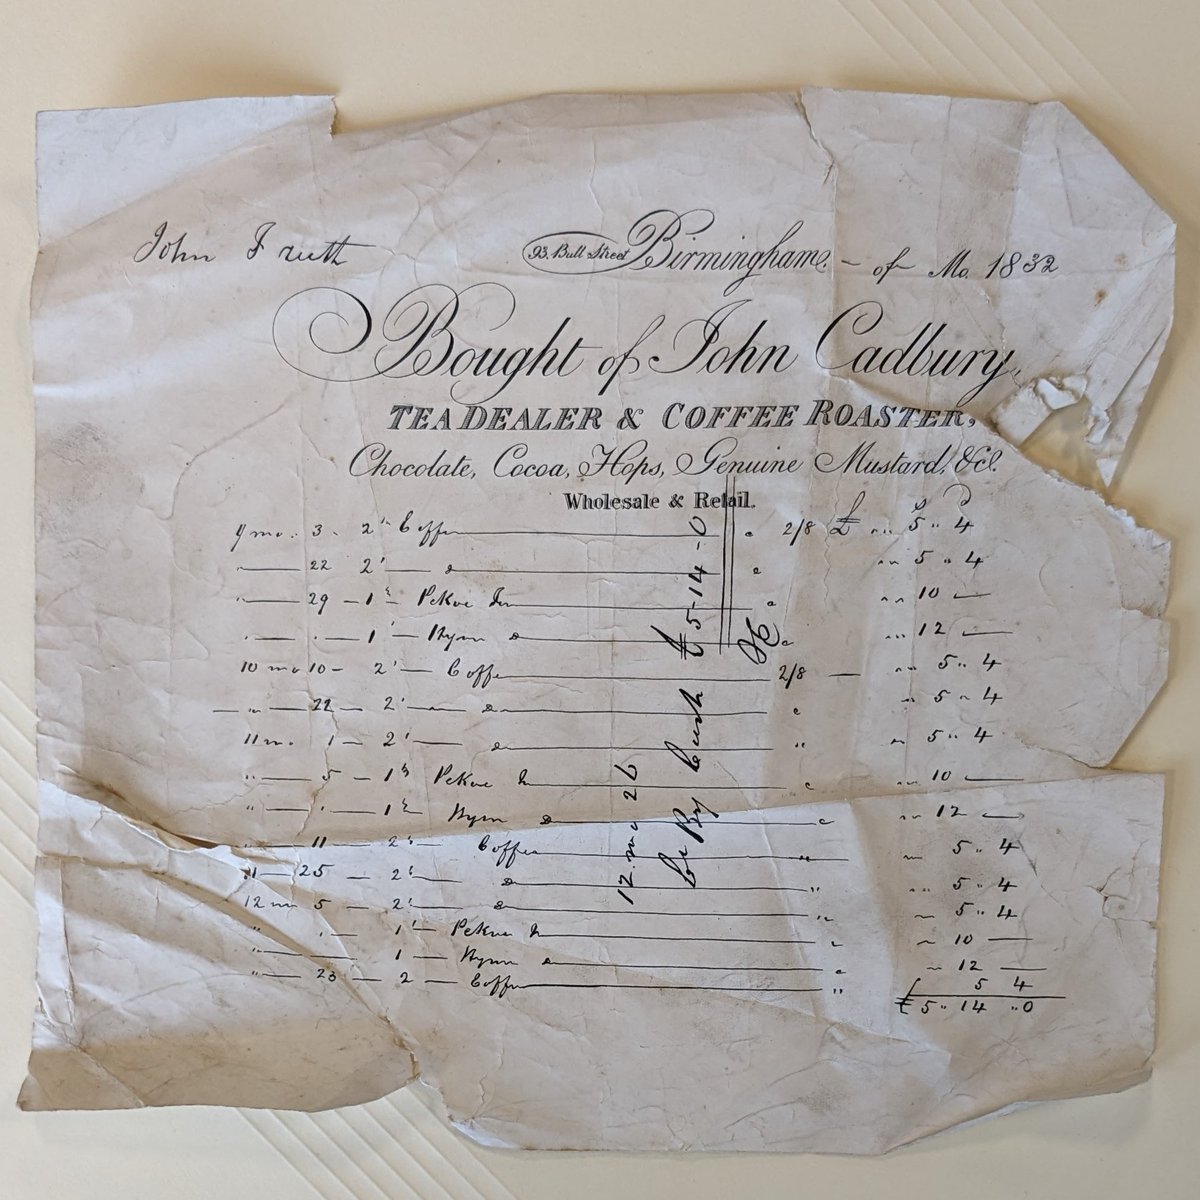 John
93, Bull Street Birmingham, - of Mo. 1832
Bought of John Cadbury,
TEA DEALER & COFFEE ROASTER,
Chocolate, Cocoa, Hops, Genuine Mustard, &c.
Wholesale & Retail.
9 mo. 3 - 2 Coffee 2/8 £ " 5 " 4
" 22 2 " 5 " 4
" 29 - 1 Pekoe " 10 —
" 1 — Hysn " 12 —
10 mo 10 - 2 — Coffe 2/8 — " 5 " 4
" 22 — 2 — " 5 " 4
11 mo. 1 — 2 — " " 5 " 4
" 5 - 1 Pekoe " 10 —
" 1 Hysn " 12 —
11 2 — Coffee " " 5 " 4
25 — 2 — " " 5 " 4
12 mo 5 — 2 — " " 5 " 4
" 1 — Pekoe " 10 —
" 1 — Hysn " 12 —
" 23 — 2 — Coffee " 5 4
£ 5 " 14 " 0
12 mo 26
By Cash £ 5 - 14 - 0